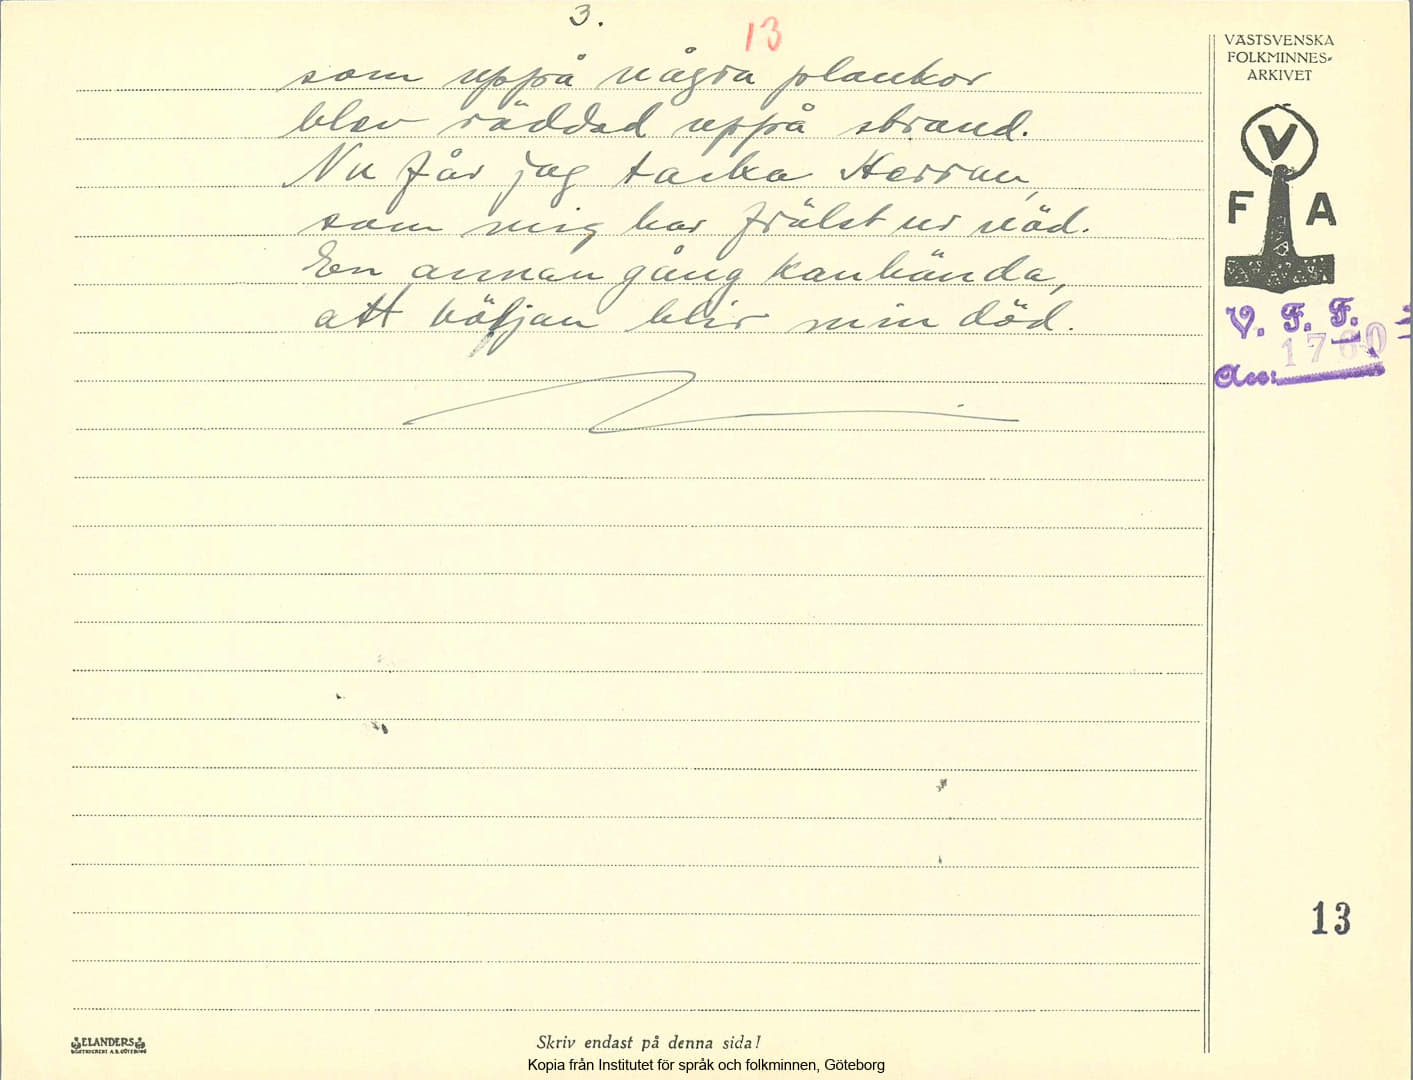 3.
13
som uppå några plankor
blev räddad uppå strand.
Nu får jag tacka Herran,
som mig har frälst ur nöd.
En annan gång kanhända,
att böljan blir min död.
VÄSTSVENSKA
FOLKMINNES-
ARKIVET
V
F A
V. F. F.
Acc: 1760
13
ELANDERS
Skriv endast på denna sida!
Kopia från Institutet för språk och folkminnen, Göteborg